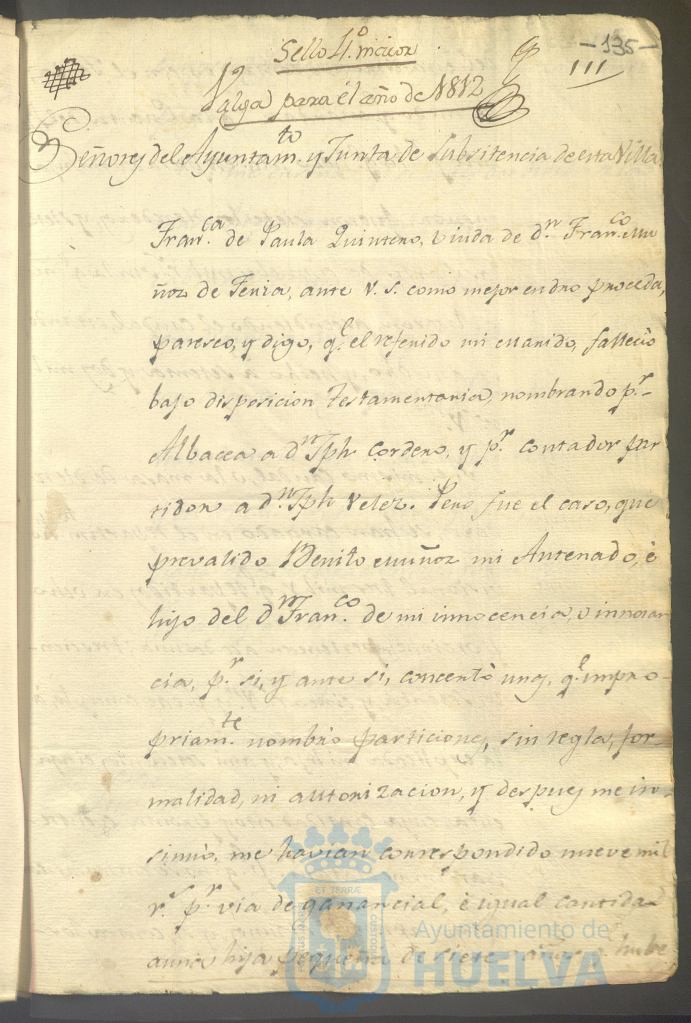 -135-
Sello 4.º maior
111
Valga para el año de 1812
Señores del Ayuntam.to y Junta de Subsitencia de esta Villa
Fran.ca de Paula Quintero, viuda de d.n Fran.co Mu
ñoz de Feria, ante V. S. como mejor en dro proceda,
paresco, y digo, q.e el referido mi marido, fallecio
bajo disposicion Testamentaria, nombrando p.r
Albacea a d.n Jph Cordero, y p.r contador par
tidor a d.n Jph Velez. Pero fue el caso, que
prevalido Benito Muñoz mi Antenado, è
hijo del d.n Fran.co de mi innocencia, o innoran
cia, p.r si, y ante si, concertò unas, q.e impro-
priam.te nombrò particiones, sin regla, for-
malidad, ni autorizacion, y despues me in-
sinuò, me havian correspondido nueve mil
r.s p.r via de ganancial, è igual cantidad
a una hija pequeña de siete años è hube
ET TERRÆ
Ayuntamiento de
HUELVA